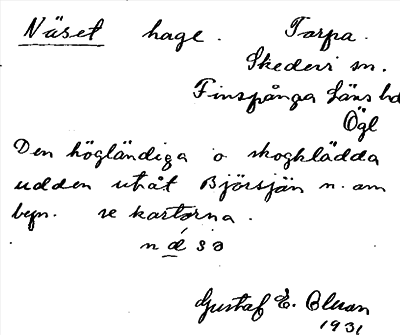 Näset hage. Torpa.
Skedevi sn.
Finspånga läns hd
Ögl
Den högländiga o skogklädda
udden utåt Björsjän n. om
byn. se kartorna.
Gustaf E.
1931